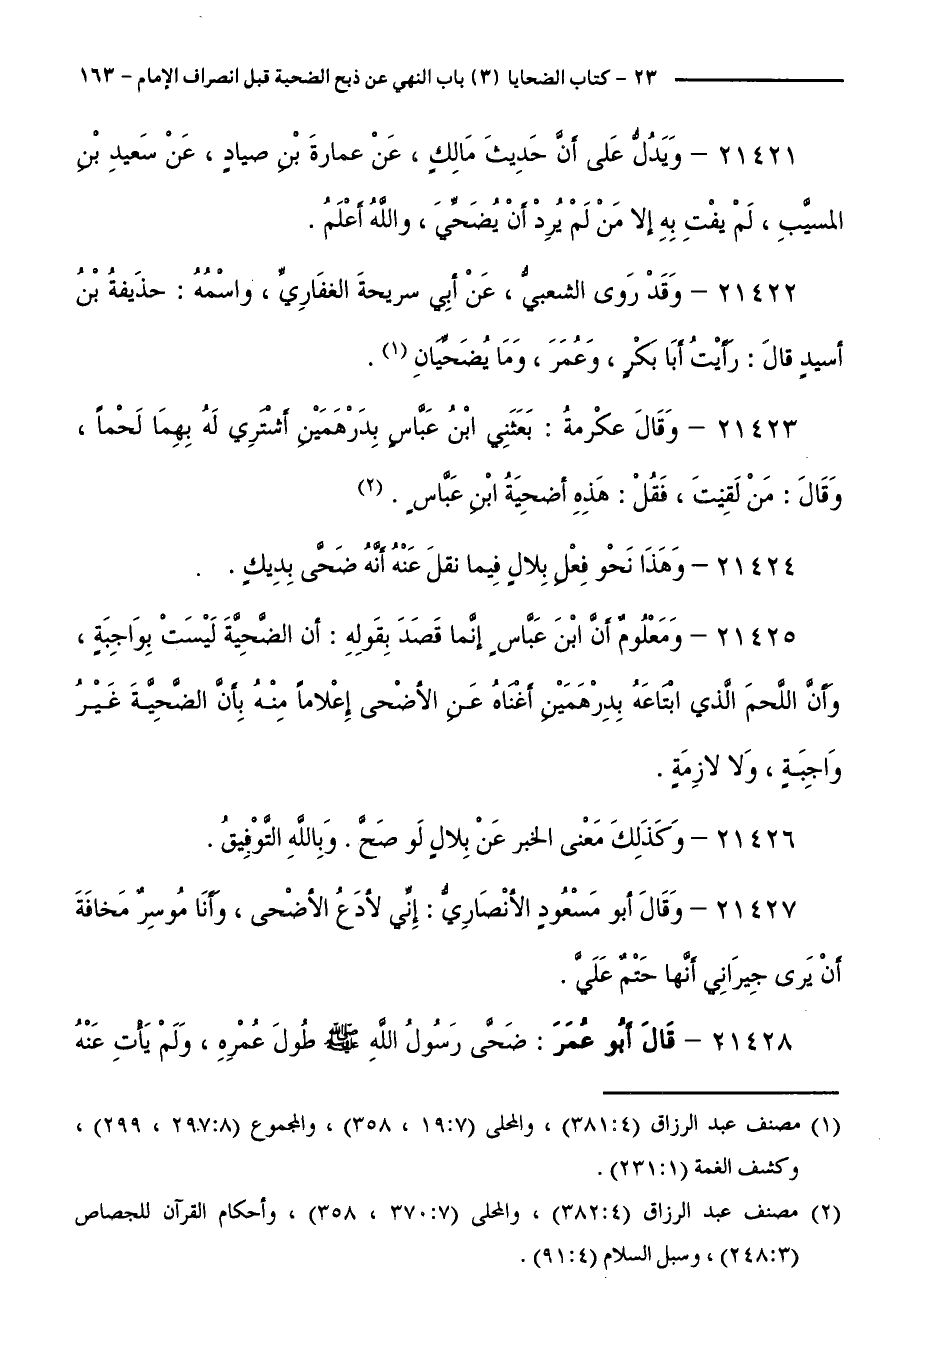 ٢٣ - كتاب الضحايا (٣) باب النهي عن ذبح الضحية قبل انصراف الإمام - ١٦٣
٢١٤٢١ - وَيَدُلُّ عَلى أَنَّ حَدِيثَ مَالِكٍ ، عَنْ عمارةَ بْنِ صيادٍ ، عَنْ سَعيدِ بْنِ
المسيَّبِ ، لَمْ يفْتِ بِهِ إلا مَنْ لَمْ يُرِدْ أَنْ يُضَحِّيَ ، واللَّهُ أَعْلَمُ .
٢١٤٢٢ - وَقَدْ رَوى الشعبيُّ ، عَنْ أَبِي سريحةَ الغفَارِيِّ ، واسْمُهُ : حذَيفةُ بْنُ
أسيدٍ قالَ : رَأَيْتُ أَبَا بَكْرٍ ، وَعُمَرَ ، وَمَا يُضَحِّيَانِ (١) .
٢١٤٢٣ - وَقَالَ عكْرمةُ : بَعَثَنِي ابْنُ عَبَّاسٍ بِدَرْهَمَيْنِ أشْتَرِي لَهُ بِهِمَا لَحْماً ،
وَقَالَ : مَنْ لَقِيتَ ، فَقُلْ : هَذِهِ أضحِيَةُ ابْنِ عَبَّاسٍ . (٢)
٢١٤٢٤ - وَهَذَا نَحْو فِعْلِ بِلالٍ فِيما نقلَ عَنْهُ أَنَّهُ ضَحَّى بِدِيكٍ .
٢١٤٢٥ - وَمَعْلُومٌ أَنَّ ابْنَ عَبَّاسٍ إنَّما قَصَدَ بِقَولِهِ : أن الضَّحِيَّةَ لَيْسَتْ بِوَاجِبَةٍ ،
وَأَنَّ اللَّحمَ الَّذي ابْتَاعَهُ بِدِرْهَمَيْنِ أَغْنَاهُ عَنِ الأضْحى إعْلاماً مِنْهُ بِأنَّ الضَّحِيَّةَ غَيْرُ
وَاجِبَةٍ ، وَلا لازِمَةٍ .
٢١٤٢٦ - وَكَذَلِكَ مَعْنى الخبر عَنْ بِلالٍ لَو صَحَّ . وَبِاللَّهِ التَّوْفِيقُ .
٢١٤٢٧ - وَقَالَ أبو مَسْعُودٍ الأنْصَارِيُّ : إنِّي لأدَعُ الأضْحى ، وَأَنَا مُوسِرٌ مَخافَةَ
أَنْ يَرى جِيرَانِي أَنَّها حَتْمٌ عَلَيَّ .
٢١٤٢٨ - قَالَ أَبُو عُمَرَ : ضَحَّى رَسُولُ اللَّهِ ﷺ طُولَ عُمْرِهِ ، وَلَمْ يَأْتِ عَنْهُ
(١) مصنف عبد الرزاق (٤:٣٨١) ، والمحلى (٧:١٩ ، ٣٥٨) ، والمجموع (٨:٢٩٧ ، ٢٩٩) ،
وكشف الغمة (١:٢٣١) .
(٢) مصنف عبد الرزاق (٤:٣٨٢) ، والمحلى (٧:٣٧٠ ، ٣٥٨) ، وأحكام القرآن للجصاص
(٣:٢٤٨) ، وسبل السلام (٤:٩١) .